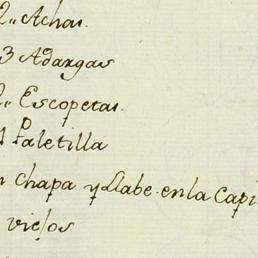 2,, Achas.
3 Adargas
2,, Escopetas.
1 Paletilla
n chapa y Llabe en la Capi
viejos